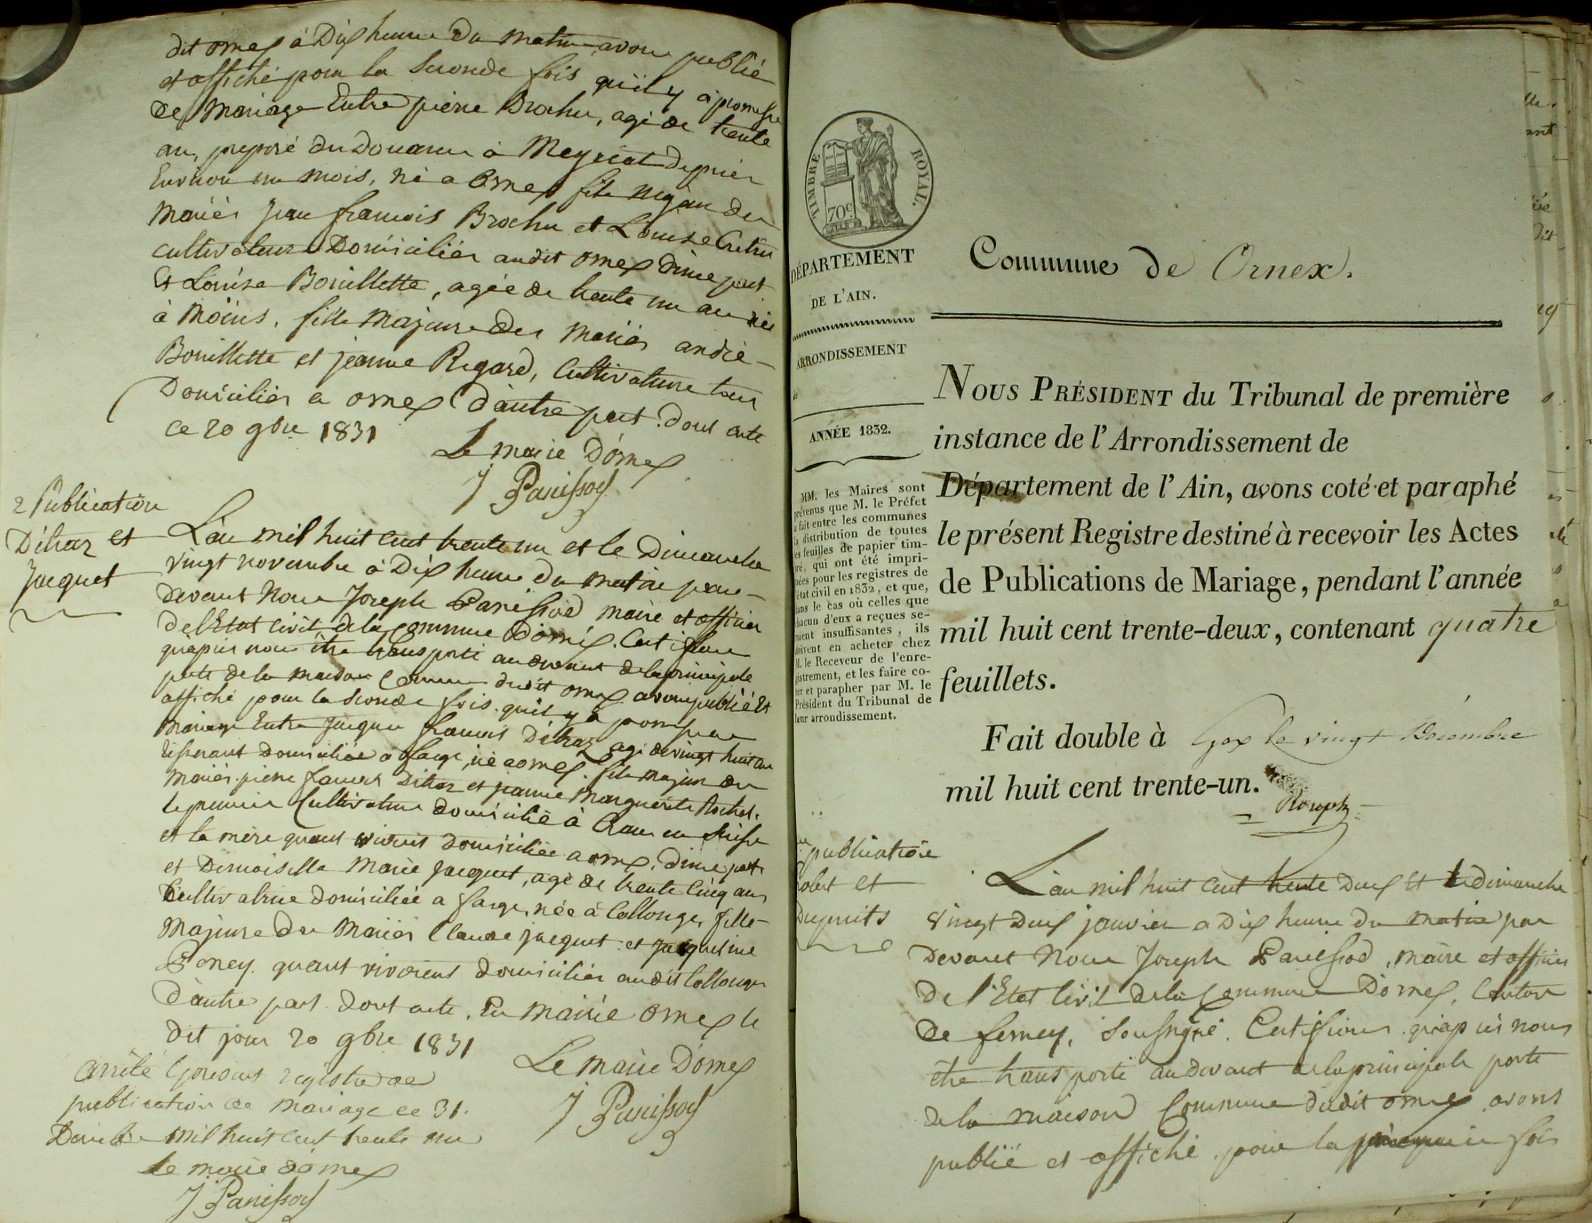 dit ornex à Dix heure du matin avon publié
et affiché pour la Seconde fois qu'il y a promesse
de Mariage Entre pierre Brochu, agé de trente
an, preposé du Douane à Meyriat depuis
Environ un mois, né a Ornex fils majeur des
mariés jean francois Brochu et Louise
cultivateurs Domiciliés audit ornex d'une part
Et Louise Bouillette, agée de trente un an née
à Moëns, fille Majeure des mariés andré
Bouillette et jeanne Regard, Cultivateurs tous
Domiciliés a ornex d'autre part. dont acte
ce 20 9bre 1831
Le maire D'ornex
J Panissod
2 Publication
Détraz et
Jacquet
L'an mil huit cent trente un et le Dimanche
vingt novembre à Dix heure du matin par
devant Nous Joseph Panissod maire et officier
de l'Etat civil de la Commune D'ornex. Certifions
qu'apres nous être transporté au devant de la principale
porte de la maison Commune dudit ornex avon publié Et
affiché pour la seconde fois qu'il y a promesse
mariage Entre Jacques francois Détraz agé de vingt huit an
domicilié à farge, né a ornex. fils majeur des
Mariés pierre Détraz et jeanne Marguerite Rochet.
le premier Cultivateur domicilié à Cran en Suisse
et la mère quant vivait domiciliée a ornex, d'une part.
et Demoiselle Marie Jacquet, agé de trente Cinq ans
Cultivatrice domiciliée a farge, née à Collonge, fille
Majeure des Mariés Claude Jacquet et Jacqueline
Poney quant vivoient domiciliés audit Collonges
d'autre part dont acte, En Mairie Ornex le
dit jour 20 9bre 1831
Le maire D'ornex
J Panissod
arrêté le présent registre de
publication de Mariage ce 31.
Décembre mil huit cent trente un
Le maire d'ornex
J Panissod
TIMBRE ROYAL.
70c
DÉPARTEMENT
DE L'AIN.
ARRONDISSEMENT
ANNÉE 1832.
MM. les Maires sont
prévenus que M. le Préfet
a fait entre les communes
la distribution de toutes
les feuilles de papier tim-
bré, qui ont été impri-
mées pour les registres de
l'état civil en 1832, et que,
dans le cas où celles que
chacun d'eux a reçues se-
roient insuffisantes, ils
doivent en acheter chez
M. le Receveur de l'enre-
gistrement, et les faire co-
ter et parapher par M. le
Président du Tribunal de
leur arrondissement.
Commune de Ornex.
NOUS PRÉSIDENT du Tribunal de première
instance de l'Arrondissement de
Département de l'Ain, avons coté et paraphé
le présent Registre destiné à recevoir les Actes
de Publications de Mariage, pendant l'année
mil huit cent trente-deux, contenant quatre
feuillets.
Fait double à Gex le vingt Décembre
mil huit cent trente-un.
publication
et
Dupuits
L'an mil huit cent trente deux Et le dimanche
vingt deux janvier a Dix heure du matin par
Devant Nous Joseph Panissod, maire et officier
De l'Etat Civil de la Commune D'ornex, Canton
De ferney, Soussigné. Certifions qu'apres nous
être transporté au devant de la principale porte
de la maison Commune dudit ornex avons
publié et affiché pour la premiere fois